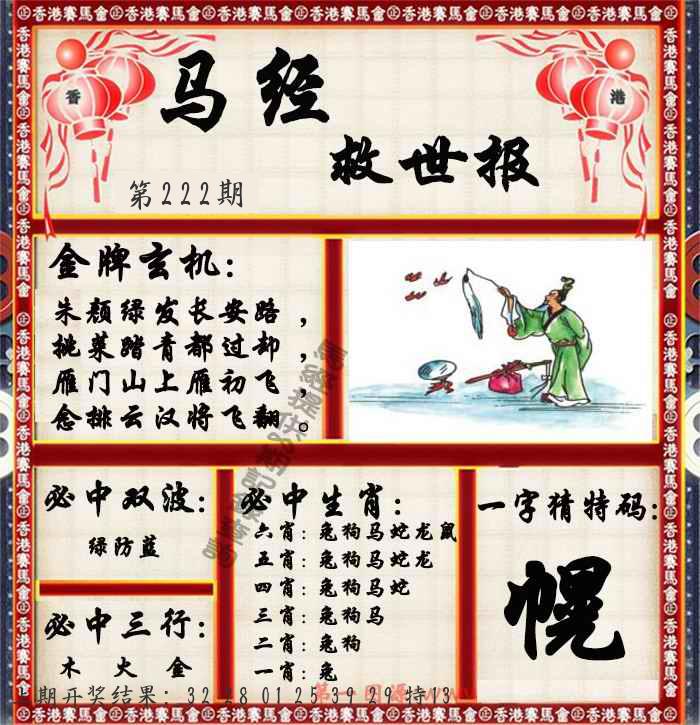 香港賽馬會
香
港
马经
救世报
第222期
金牌玄机：
朱颜绿发长安路，
挑菜踏青都过却，
雁门山上雁初飞，
念排云汉将飞翻。
必中双波：
绿防蓝
必中三行：
木 火 金
必中生肖：
六肖：兔狗马蛇龙鼠
五肖：兔狗马蛇龙
四肖：兔狗马蛇
三肖：兔狗马
二肖：兔狗
一肖：兔
一字猜特码：
幌
期开奖结果：32 28 01 25 39 29 特13
第一